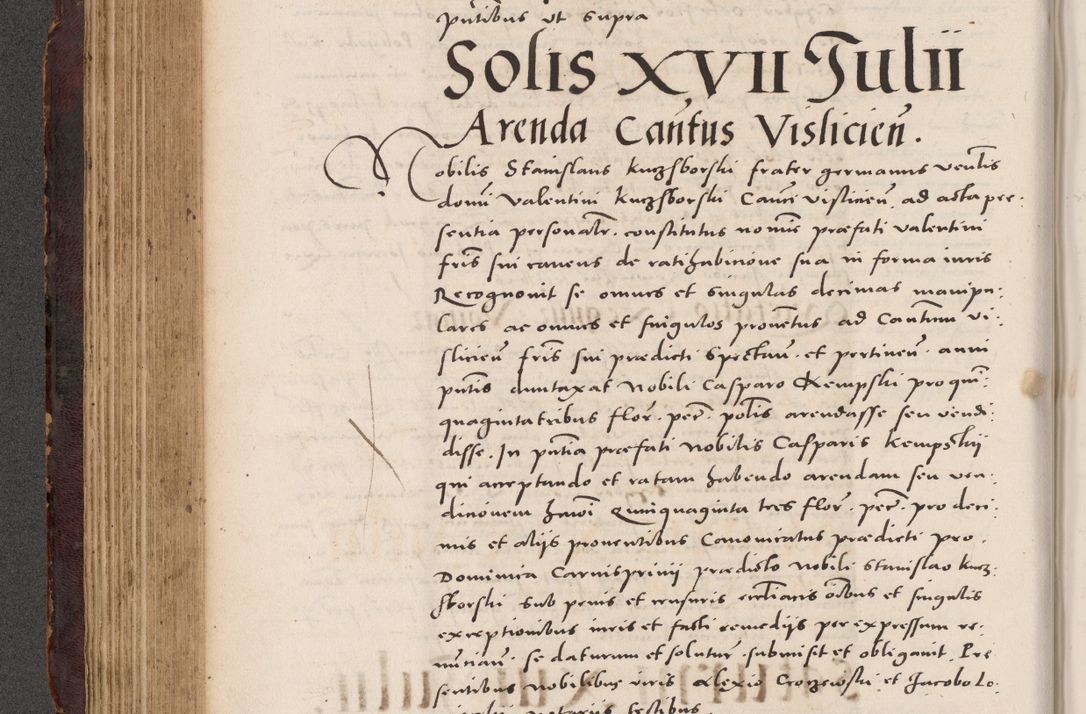 pn̄tibus ut supra
Solis XVII Julii
Arenda Can̄tus Vislicien̄.
Nobilis Stanislaus Kuczsborski frater germanus ven̄lis
domi Valentini Kuczsborski Canci vislicien̄, ad acta pre:
sentia personalr̄. constitutus no mīe præfati valentini
fr̄is sui cavens de ratihabicione sua in forma iuris
Recognovit se omnes et singulas decimas manipu:
lares ac omnes et singulos proventus ad Can̄tum vi:
slicien̄ fr̄is sui prædicti spectan̄. et pertinen̄. anni
pn̄tis duntaxat Nobili Casparo Kempski pro quin:
quagintatribus flor̄. pec̄. pol̄is arendasse seu vendi:
disse. In pn̄tia præfati nobilis Casparis Kempskii
qui acceptando et ratam habendo arendam seu ven:
dicionem hm̄oi Quinquaginta tres flor̄. pec̄. pro deci:
mis et aliis proventibus Canonicatus prædicti pro
Dominica Carnisprivii prædicto nobili Stanislao Kucz:
sborski sub penis et censuris eccl̄iacis om̄ibus et singulis
exceptionibus iuris et facti remediis per expressum re:
nuncian̄. se daturum et solutur̄. submisit et obligavit. Pre
sentibus nobilibus viris Alexio Croczewski et Jacobo Lo:
notariis testibus.